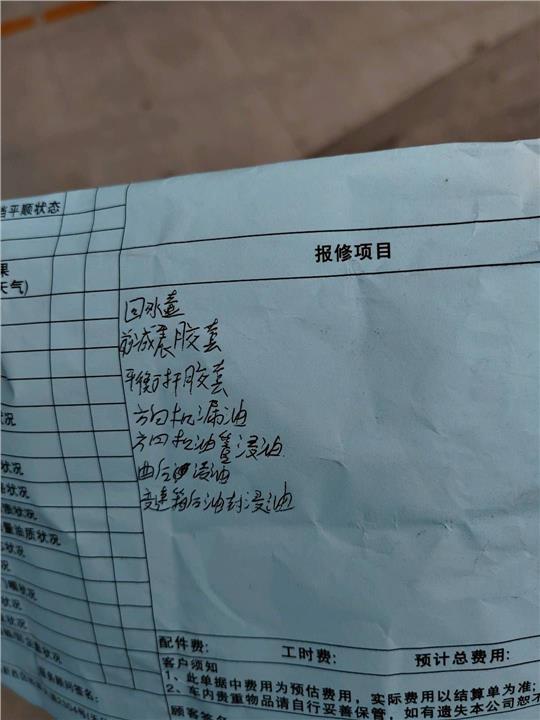 当平顺状态
报修项目
果
天气)
回水盖
前减震胶套
平衡杆胶套
方向机漏油
方向机油管浸油
曲后油浸油
变速箱后油封浸油
状况
状况
状况
状况
量油质状况
状况
状况
状况
状况
配件费: 工时费: 预计总费用:
客户须知
1、此单据中费用为预估费用，实际费用以结算单为准;
2、车内贵重物品请自行妥善保管，如有遗失本公司恕不
顾客签名